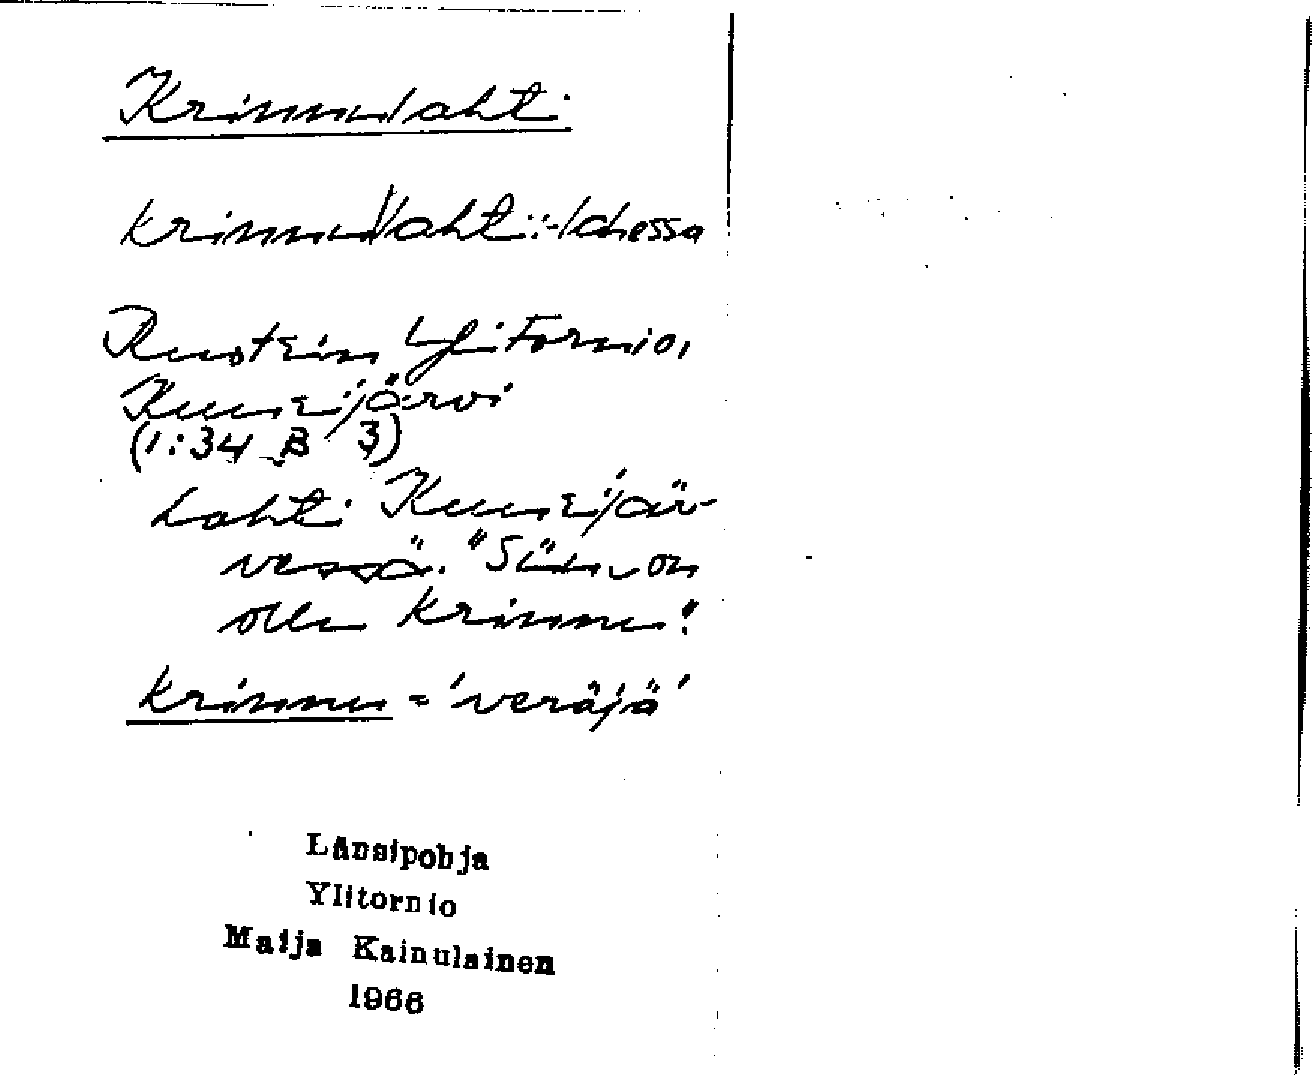 Krinnulahti
krinnu//laht̄i: -lahessa
Ruotsin Ylitornio,
Kuusijärvi
(1:34 B 3)
Lahti Kuusijär-
vessä. "Siin on
ollu krinnu".
krinnu = 'veräjä'
Länsipohja
Ylitornio
Maija Kainulainen
1966